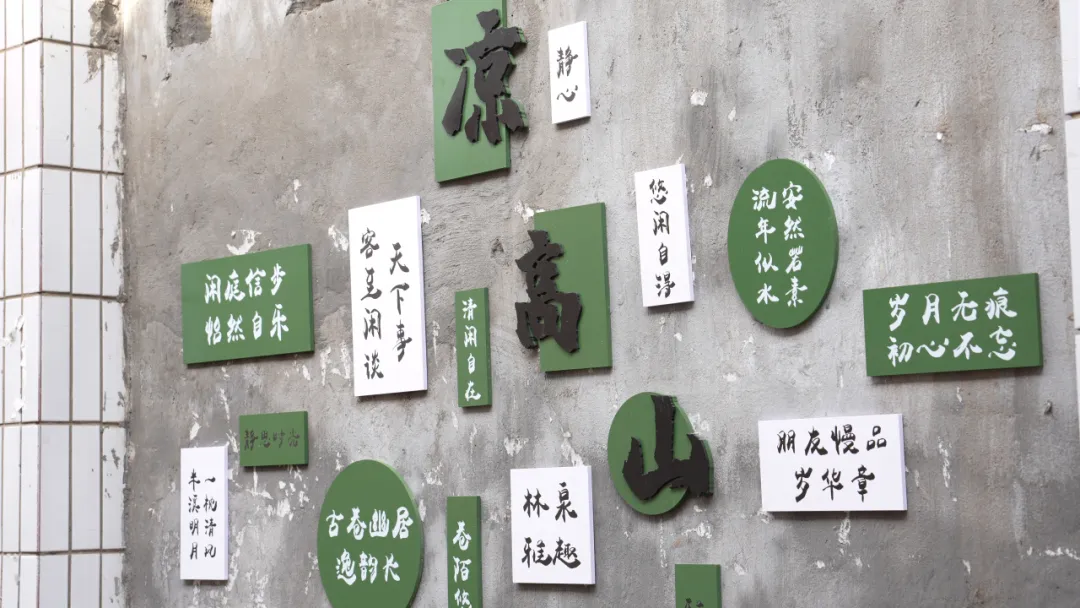 凉
高
山
静心
悠闲自得
安然若素
流年似水
天下事
客至闲谈
闲庭信步
怡然自乐
清闲自在
岁月无痕
初心不忘
静思时
朋友慢品
岁华章
一枕清风
半溪明月
古巷幽居
逸韵长
林泉
雅趣
巷陌悠